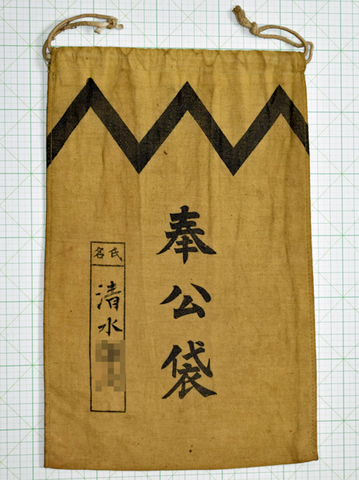 奉公袋
氏名
清水